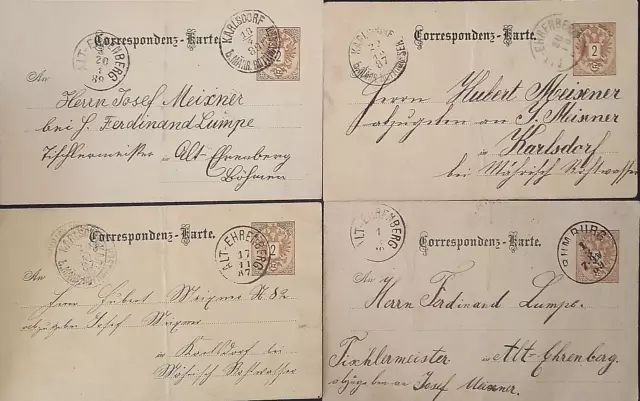 Correspondenz-Karte.
KARLSDORF
ALT-EHRENBERG
20
89
An
Herrn Josef Meixner
bei H. Ferdinand Lumpe
Tischlermeister in Alt-Ehrenberg
Böhmen
Correspondenz-Karte.
KARLSDORF
EHRENBERG
2
An
Herrn Hubert Meixner
abzugeben an J. Meixner
in Karlsdorf
bei Mährisch Rothwasser
Correspondenz-Karte.
KARLSDORF
ALT-EHRENBERG
17
11
87
2
An
Herrn Hubert Meixner N. 82
abzugeben Josef Meixner
in Karlsdorf bei
Mährisch Rothwasser
Correspondenz-Karte.
ALT-EHRENBERG
1
RUMBURG
An
Herrn Ferdinand Lumpe.
Tischlermeister in Alt-Ehrenberg.
abzugeben an Josef Meixner.